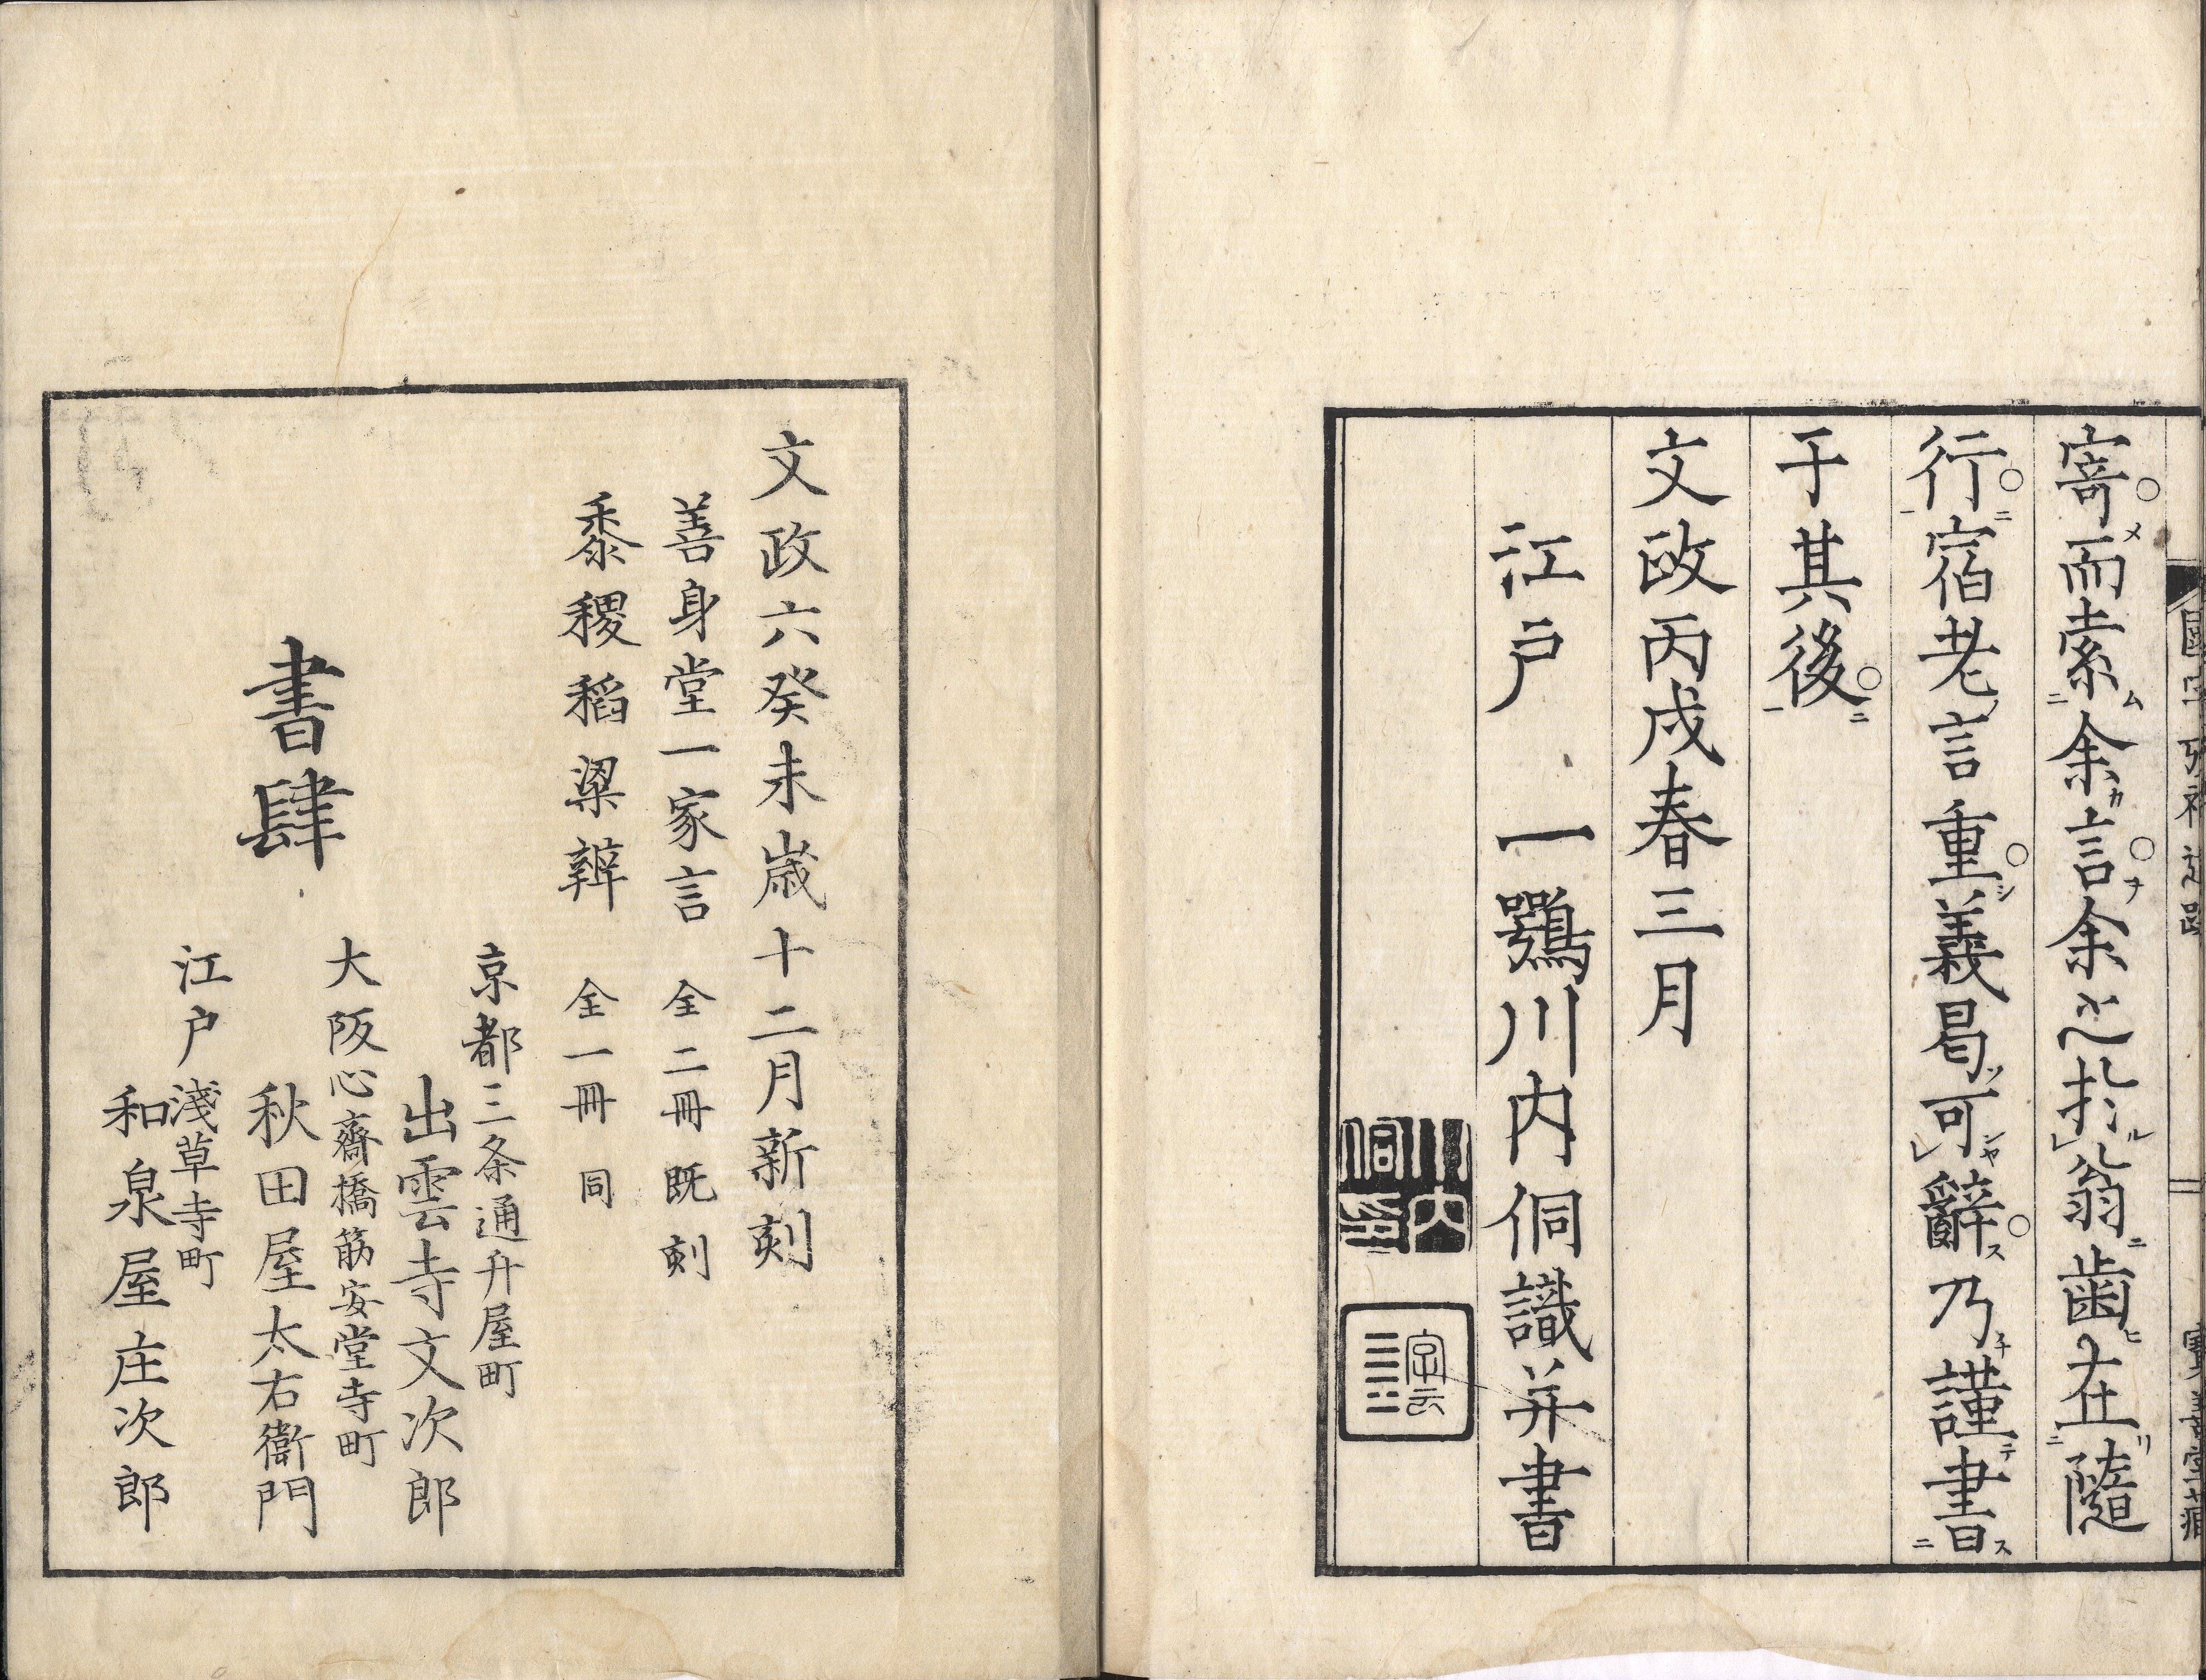 寄而索余言余之於翁齒在隨
行宿老言重義曷可辭乃謹書
于其後
文政丙戌春三月
江戸　一鶚川内侗識并書
文政六癸未歳十二月新刻
善身堂一家言　全二冊　既刻
黍稷稻粱辨　全一冊　同
京都三条通升屋町
出雲寺文次郎
大阪心齋橋筋安堂寺町
秋田屋太右衛門
書肆
江戸浅草寺町
和泉屋庄次郎